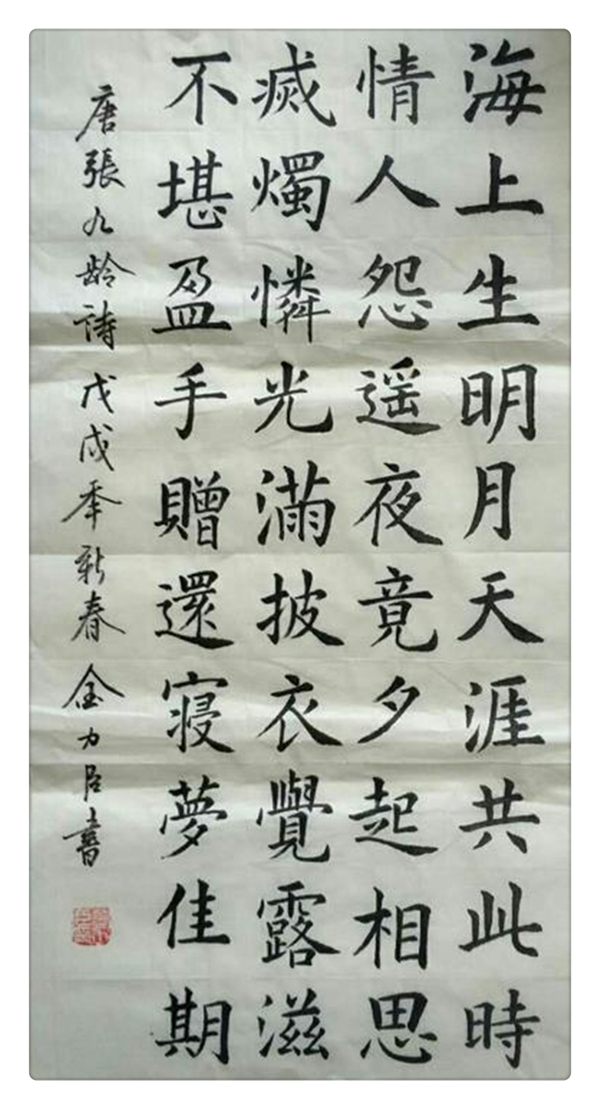 海上生明月天涯共此時
情人怨遥夜竟夕起相思
滅燭憐光滿披衣覺露滋
不堪盈手贈還寝夢佳期
唐張九龄詩戊戌年新春金力君書